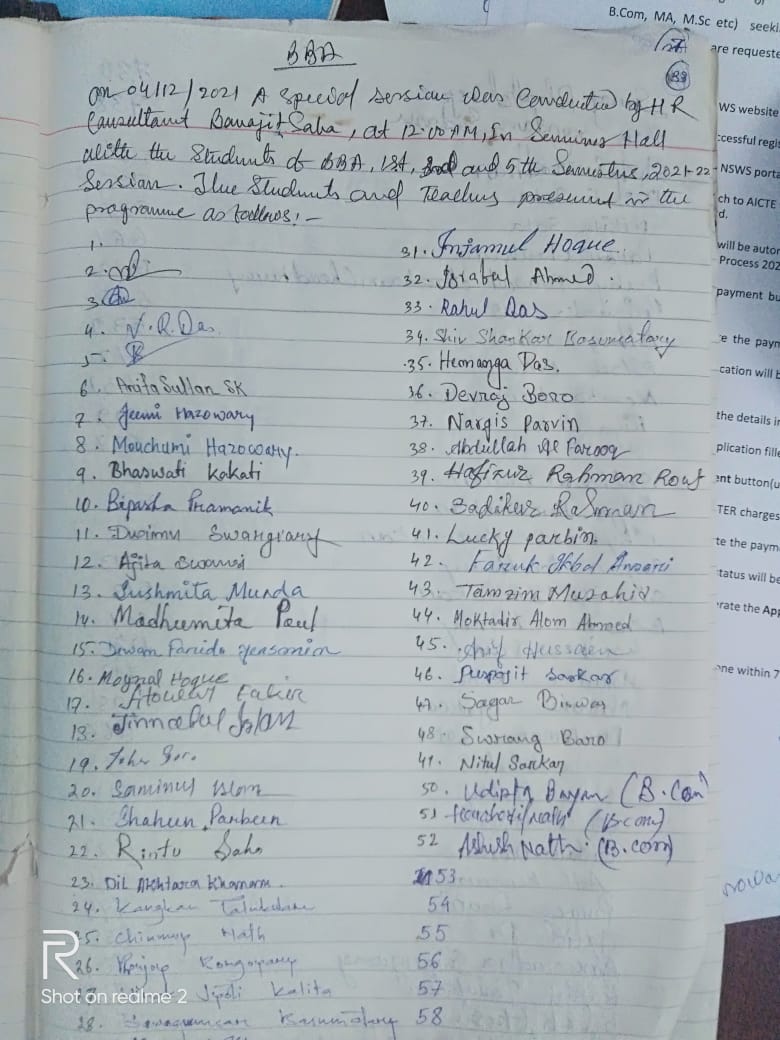 B.Com, MA, M.Sc etc) seeki
are requeste
WS website
ccessful regis
NSWS porta
ch to AICTE
d.
will be autor
Process 202
payment bu
e the paym
cation will b
the details in
plication fille
ent button(u
TER charges
te the paym
tatus will be
rate the App
one within 7
BBA
on 04/12/2021 A special session was conducted by HR
Consultant Banajit Saha, at 12:00 AM, In Seminer Hall
with the Students of BBA, 1st, 3rd and 5th Semesters, 2021-22
Session. The Students and Teachers present in the
programme as follows:-
1.
2.
3.
4. N.R.Das
5.
6. Arifa Sultan SK
7. Jeemi Hazowary
8. Mouchumi Hazowary.
9. Bhaswati Kakati
10. Bipasha Pramanik
11. Dwimu Swargiary
12. Ajita
13. Sushmita Munda
14. Madhumita Paul
15. Dewan Farida Yeasmin
16. Moynal Hoque
17. Fakir
18. Islam
19.
20. Saminul Islam
21. Shaheen Parbeen
22. Rintu Saha
23. Dil Akhtara Khanam.
24. Kangkan Talukdar
25. Chinmoy Nath
26.
Jyoti Kalita
28.
31. Injamul Hoque
32. Ahmed.
33. Rahul Das
34. Shiv Shankar Basumatary
35. Hemanga Das.
36. Devraj Boro
37. Nargis Parvin
38. Abdullah Al Farooq
39. Hafizur Rahman Rouf
40. Sadikur Rahman
41. Lucky parbin.
42. Faruk Ikbal Ansari
43. Tamzim Muzahid
44. Moktadir Alom Ahmed
45. Arif Hussain
46. Sarkar
47. Sagar Biswas
48. Swrang Baro
49. Nitul Sarkar
50. Udipta Bayan (B.Com)
51 Nath (B.com)
52 Ashish Nath (B.com)
53
54
55
56
57
58
R
Shot on realme 2